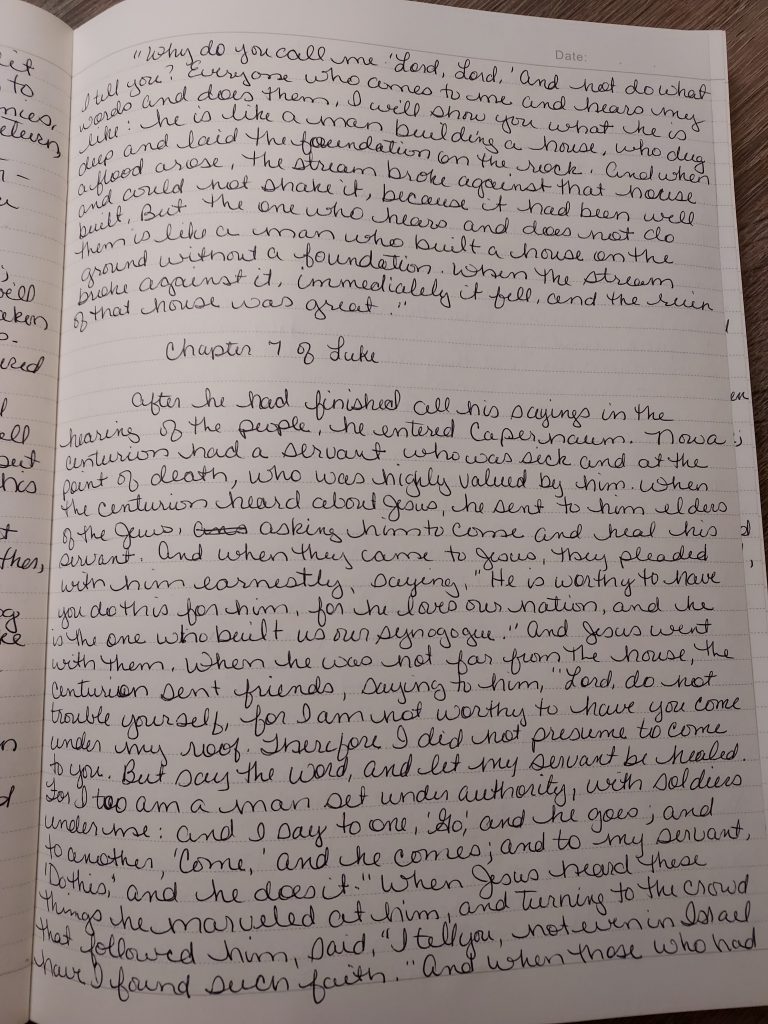 Date:
"Why do you call me 'Lord, Lord,' and not do what
I tell you? Everyone who comes to me and hears my
words and does them, I will show you what he is
like: he is like a man building a house, who dug
deep and laid the foundation on the rock. And when
a flood arose, the stream broke against that house
and could not shake it, because it had been well
built. But the one who hears and does not do
them is like a man who built a house on the
ground without a foundation. When the stream
broke against it, immediately it fell, and the ruin
of that house was great."
Chapter 7 of Luke
After he had finished all his sayings in the
hearing of the people, he entered Capernaum. Now a
centurion had a servant who was sick and at the
point of death, who was highly valued by him. When
the centurion heard about Jesus, he sent to him elders
of the Jews, asking him to come and heal his
servant. And when they came to Jesus, they pleaded
with him earnestly, saying, "He is worthy to have
you do this for him, for he loves our nation, and he
is the one who built us our synagogue." And Jesus went
with them. When he was not far from the house, the
centurion sent friends, saying to him, "Lord, do not
trouble yourself, for I am not worthy to have you come
under my roof. Therefore I did not presume to come
to you. But say the word, and let my servant be healed.
For I too am a man set under authority, with soldiers
under me: and I say to one, 'Go,' and he goes; and
to another, 'Come,' and he comes; and to my servant,
'Do this,' and he does it." When Jesus heard these
things he marveled at him, and turning to the crowd
that followed him, said, "I tell you, not even in Israel
have I found such faith." And when those who had